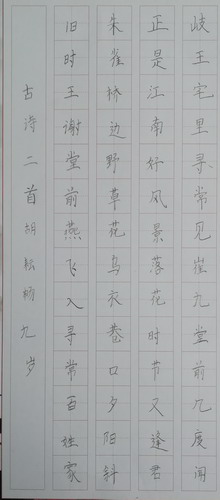 岐王宅里寻常见崔九堂前几度闻
正是江南好风景落花时节又逢君
朱雀桥边野草花乌衣巷口夕阳斜
旧时王谢堂前燕飞入寻常百姓家
古诗二首胡耘杨九岁